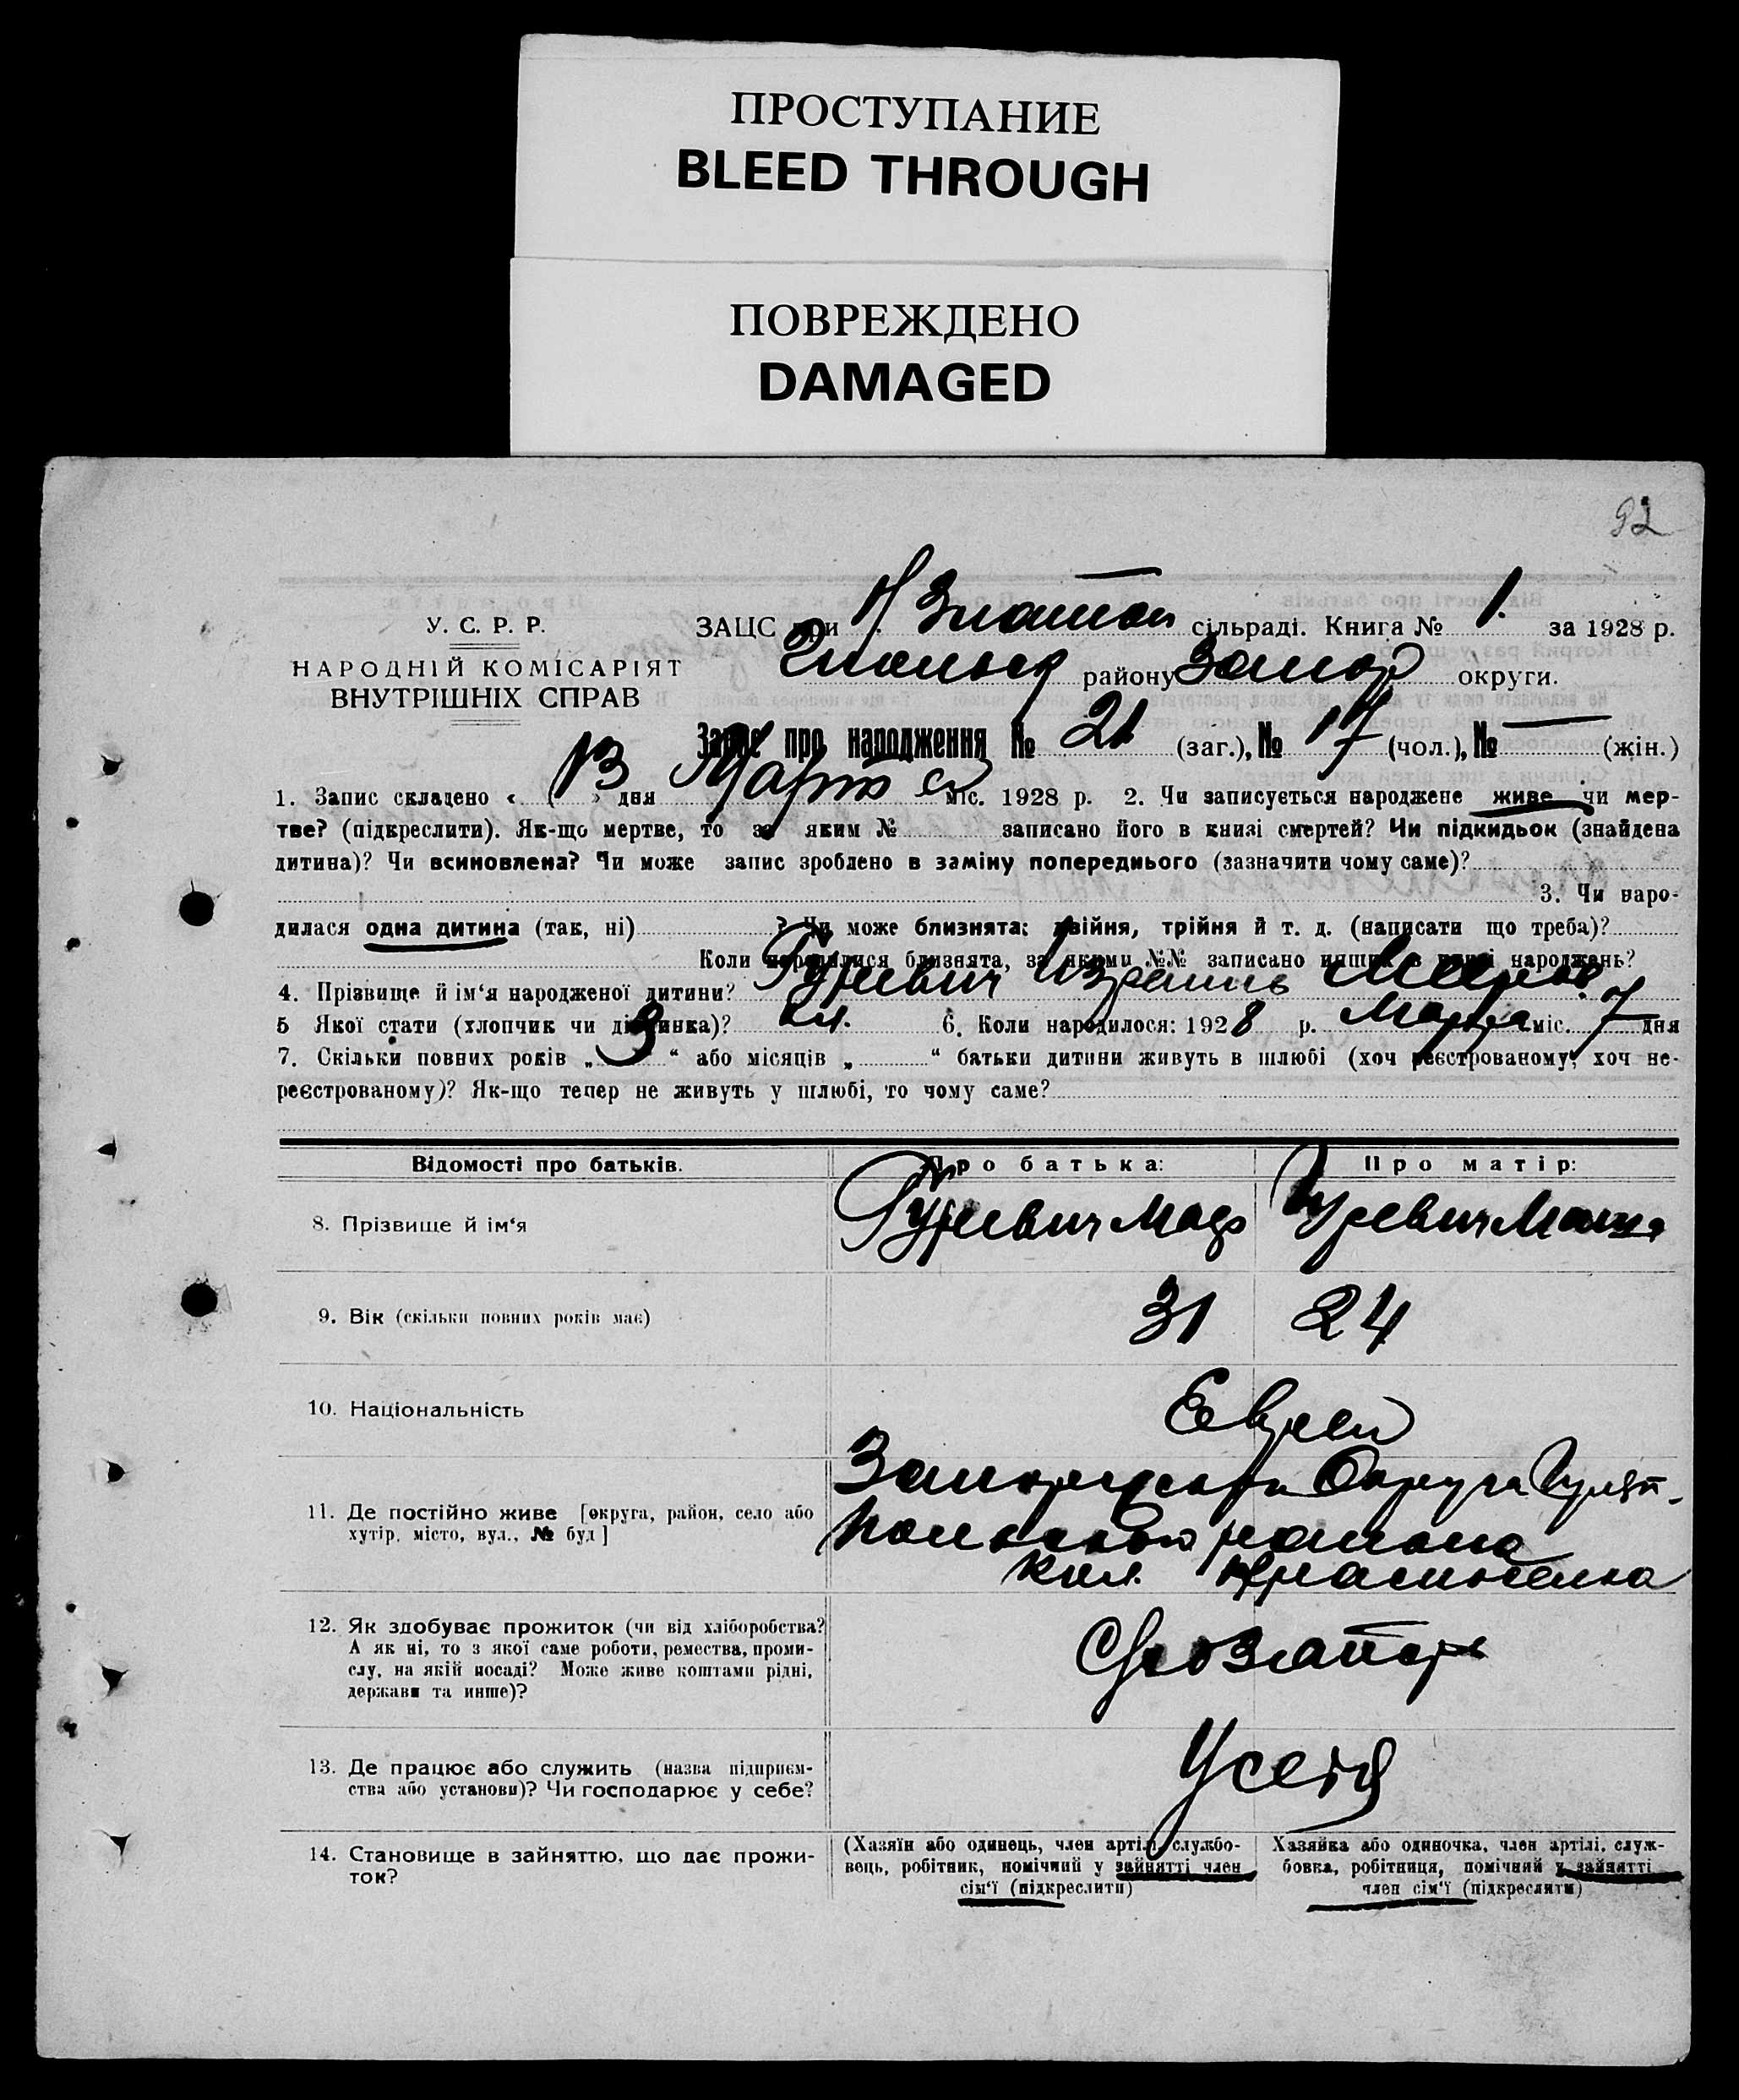 ПРОСТУПАНИЕ
BLEED THROUGH
ПОВРЕЖДЕНО
DAMAGED
92
У. С. Р. Р.
НАРОДНІЙ КОМІСАРІЯТ
ВНУТРІШНІХ СПРАВ
ЗАЦС при сільраді. Книга № 1. за 1928 р.
району Запор округи.
Запис про народження № 21 (заг.), № 17 (чол.), № — (жін.)
1. Запис складено « 13 » дня Марта міс. 1928 р. 2. Чи записується народжене живе чи мер-
тве? (підкреслити). Як-що мертве, то за яким № записано його в книзі смертей? Чи підкидьок (знайдена
дитина)? Чи всиновлена? Чи може запис зроблено в заміну попереднього (зазначити чому саме)?
3. Чи наро-
дилася одна дитина (так, ні) ? Чи може близнята: двійня, трійня й т. д. (написати що треба)?
Коли народилися близнята, за якими №№ записано инших в книзі народжень?
4. Прізвище й ім‘я народженої дитини? Гуревич Израиль
5 Якої стати (хлопчик чи дівчинка)? хл. 6. Коли народилося: 1928 р. Марта міс. 7 дня
7. Скільки повних років „ 3 “ або місяців „ “ батьки дитини живуть в шлюбі (хоч реєстрованому, хоч не-
реєстрованому)? Як-що тепер не живуть у шлюбі, то чому саме?
Відомості про батьків. Про батька: Про матір:
8. Прізвище й ім‘я Гуревич Гуревич Маша
9. Вік (скільки повних років має) 31 24
10. Національність Еврей
11. Де постійно живе [округа, район, село або
хутір, місто, вул., № буд]
Округа Гуляй-
польского района
кол.
12. Як здобуває прожиток (чи від хліборобства?
А як ні, то з якої саме роботи, ремества, проми-
слу, на якій посаді? Може живе коштами рідні,
держави та инше)?
13. Де працює або служить (назва підприєм-
ства або установи)? Чи господарює у себе?
У себя
14. Становище в зайняттю, що дає прожи-
ток?
(Хазяїн або одинець, член артілі, службо-
вець, робітник, помічний у зайнятті член
сім‘ї (підкреслити)
Хазяйка або одиночка, член артілі, служ-
бовка, робітниця, помічний у зайнятті
член сім‘ї (підкреслити)